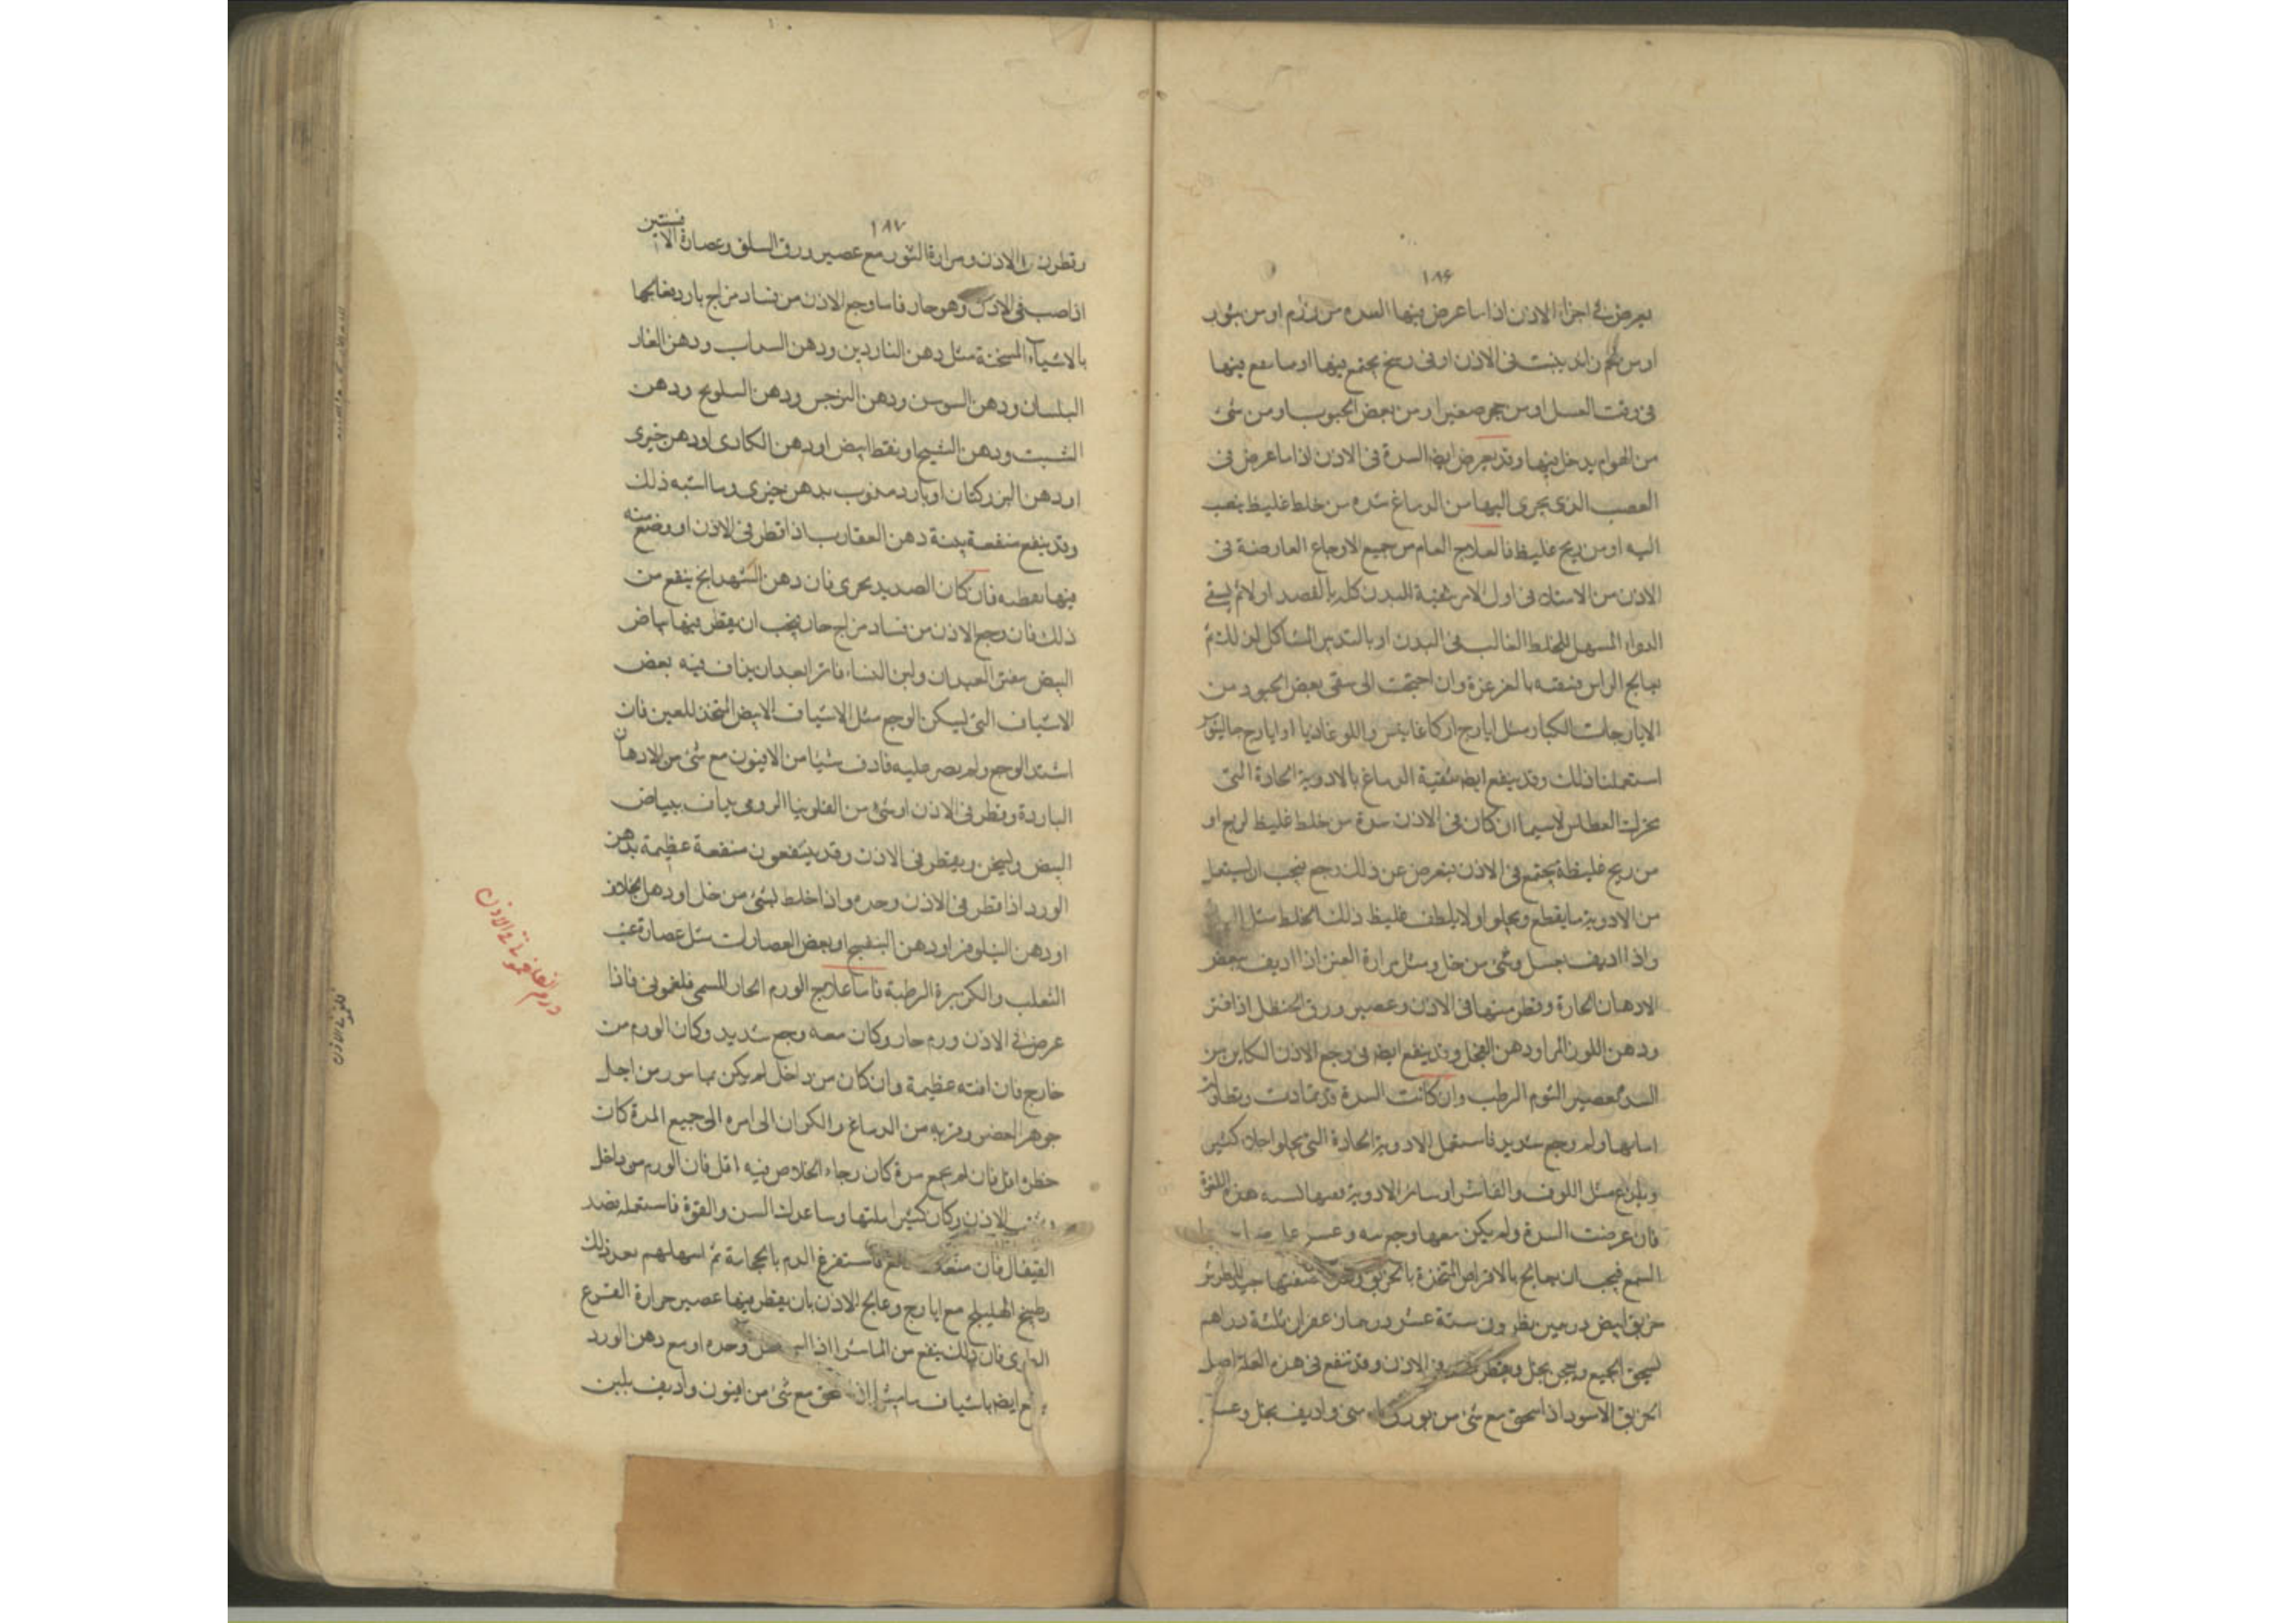 ١٨۶
يعرض في اجزاء الاذن اذا ما عرض فيها السده من ورم او من بثور
او من لحم زايد ينبت فى الاذن او فى وسخ يجتمع فيها او ما يقع فيها
فى وقت الغسل او من حجر صغير او من بعض الحبوب او من شئ
من الهوام يدخل فيها وقد يعرض ايضا السدة فى الاذن اذا ما عرض فى
العصب الذى يجرى اليها من الدماغ سده من خلط غليظ ينصب
اليه او من ريح غليظ فالعلاج العام من جميع الاوجاع العارضة فى
الاذن من الاستاذ فى اول الامر تنقية البدن كله بالفصد اولا ثم يسقى
الدواء المسهل للخلط الغالب فى البدن او بالتدبير المشاكل لذلك ثم
يعالج الراس فينقه بالغرغرة وان احتجت الى سقى بعض الحبوب من
الايارجات الكبار مثل ايارج اركاغانيس واللوغاذيا او ايارج جالينوس
استعملنا ذلك وقد ينفع ايضا تنقية الدماغ بالادوية الحادة التى
تحرك العطاس لاسيما ان كان فى الاذن سدة من خلط غليظ لزج او
من ريح غليظة يجتمع فى الاذن يتعرض عن ذلك وجع فيجب ان يستعمل
من الادوية ما يقطع ويجلو اولا يلطف غليظ ذلك الخلط مثل
واذا اديف بعسل وشئ من خل ومثل مرارة العنز اذا اديف ببعض
الادهان الحارة وقطر منها فى الاذن وعصير ورق الحنظل اذا فتر
ودهن اللوز المر او دهن الفجل وقد ينفع ايضا فى وجع الاذن الكاين من
السدة عصير الثوم الرطب وان كانت السدة قد تمادت وتطاولت
ايامها ولم وجع شديد فاستعمل الادوية الحادة التى يجلو اجلاء كثير
مثل اللوف والفاشرا وساير الادوية هذه القوة
فان عرضت السدة ولم يكن معها وجع
السمع فيجب ان يعالج بالاقراص المتخذة بالخربق
خربق ابيض درهمين نطرون ستة عشر درهما زعفران ثلثة دراهم
يسحق الجميع ويعجن بخل ويقطر فى الاذن وقد ينفع فى هذه العلة اصل
الخربق الاسود اذا سحق مع شئ من بورق واديف بخل
١٨٧
وتطر فى الاذن ومرارة الثور مع عصير ورق السلق وعصارة الافسنتين
اذا صب فى الاذن وهو حار فاما وجع الاذن من فساد مزاج بارد يعالجها
بالاشياء المسخنة مثل دهن الناردين ودهن السداب ودهن الغار
البلسان ودهن السوسن ودهن النرجس ودهن السلويج ودهن
الشبت ودهن الشيح او نفط ابيض او دهن الكادى او دهن خيرى
او دهن البزركتان او بارد مذوب بدهن خيرى وما اشبه ذلك
وقد ينفع منفعة بينة دهن العقارب اذا قطر فى الاذن او وضع منه
فيها بقطنه فان كان الصديد يجرى فان دهن الشهدانج ينفع من
ذلك فان وجع الاذن من فساد مزاج حار يجب ان يقطر فيها بياض
البيض مفتر العيدان ولبن النساء فاتر ابعد ان يذاف فيه بعض
الاشياف التى ليسكن الوجع مثل الاشياف الابيض المتخذ للعين فان
اشتد الوجع ولم يصبر عليه فادف شيئا من الافيون مع شئ من الادهان
الباردة وقطر فى الاذن او شئ من الفلونيا الرومى يداف ببياض
البيض وليسخن ويقطر فى الاذن وقد ينتفعون منفعة عظيمة بدهن
الورد اذا قطر فى الاذن وحده واذا خلط بشئ من خل او دهن الخلاف
او دهن النيلوفر او دهن البنفسج او بعض العصارات مثل عصارة عنب
الثعلب والكزبرة الرطبة فاما علاج الورم الحار المسمى فلغمونى فاذا
عرض في الاذن ورم حار وكان معه وجع شديد وكان الورم من
خارج فان افته عظيمة وان كان من داخل لم يكن من اجل
جوهر العضو وقربه من الدماغ والكوان الى امره الى جميع المدة كان
خطره اقل فان لم يجمع مدة كان رجاء الخلاص فيه اقل فان الورم من داخل
الاذن وكان كثيرا ملتها وساعدك السن والقوة فاستعمله فصد
القيفال فان منعك مانع فاستفرغ الدم بالحجامة ثم اسهلهم بعد ذلك
بطبيخ الهليلج مع ايارج وعالج الاذن بان يقطر فيها عصير جرادة القرع
الطرى فان ذلك ينفع من الماشرا اذا وحده او مع دهن الورد
ايضا باشياف ماميثا اذا سحق مع شئ من افيون واديف بلبن
ورم فلغمونى فى الاذن